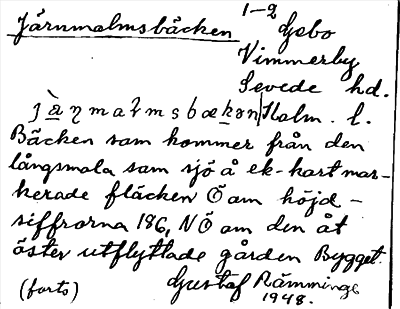 Järnmalmsbäcken 1–2 Gebo
Vimmerby
Sevede hd.
Kalm. l.
Bäcken sam kommer från den
långsmala sam sjö å ek-kart mar-
kerade fläcken Ö am höjd-
siffrorna 186, NÖ am den åt
öster utflyttade gården Bygget.
(forts) Gustaf Rämminge
1948.